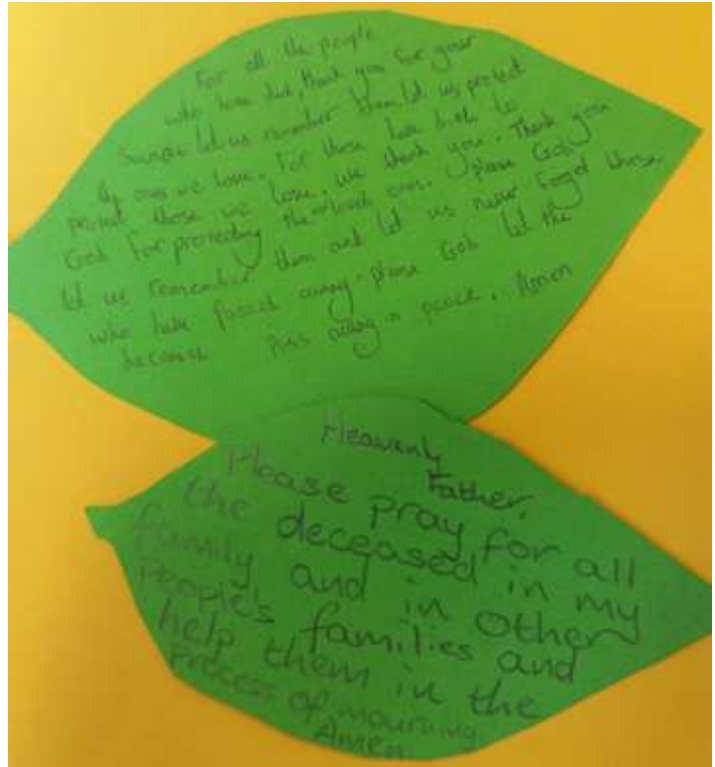 For all the people
who have died, thank you for your
Sacrifice let us remember them. let us protect
the ones we love. For those have died to
protect those we love, we thank you. Thank you
God for protecting the loved ones. please God
let us remember them and let us never forget those
who have passed away. please God let the
decease pass away in peace. Amen
Heavenly
Father,
Please pray for all
the deceased in my
family and in other
People's families and
help them in the
process of mourning.
Amen